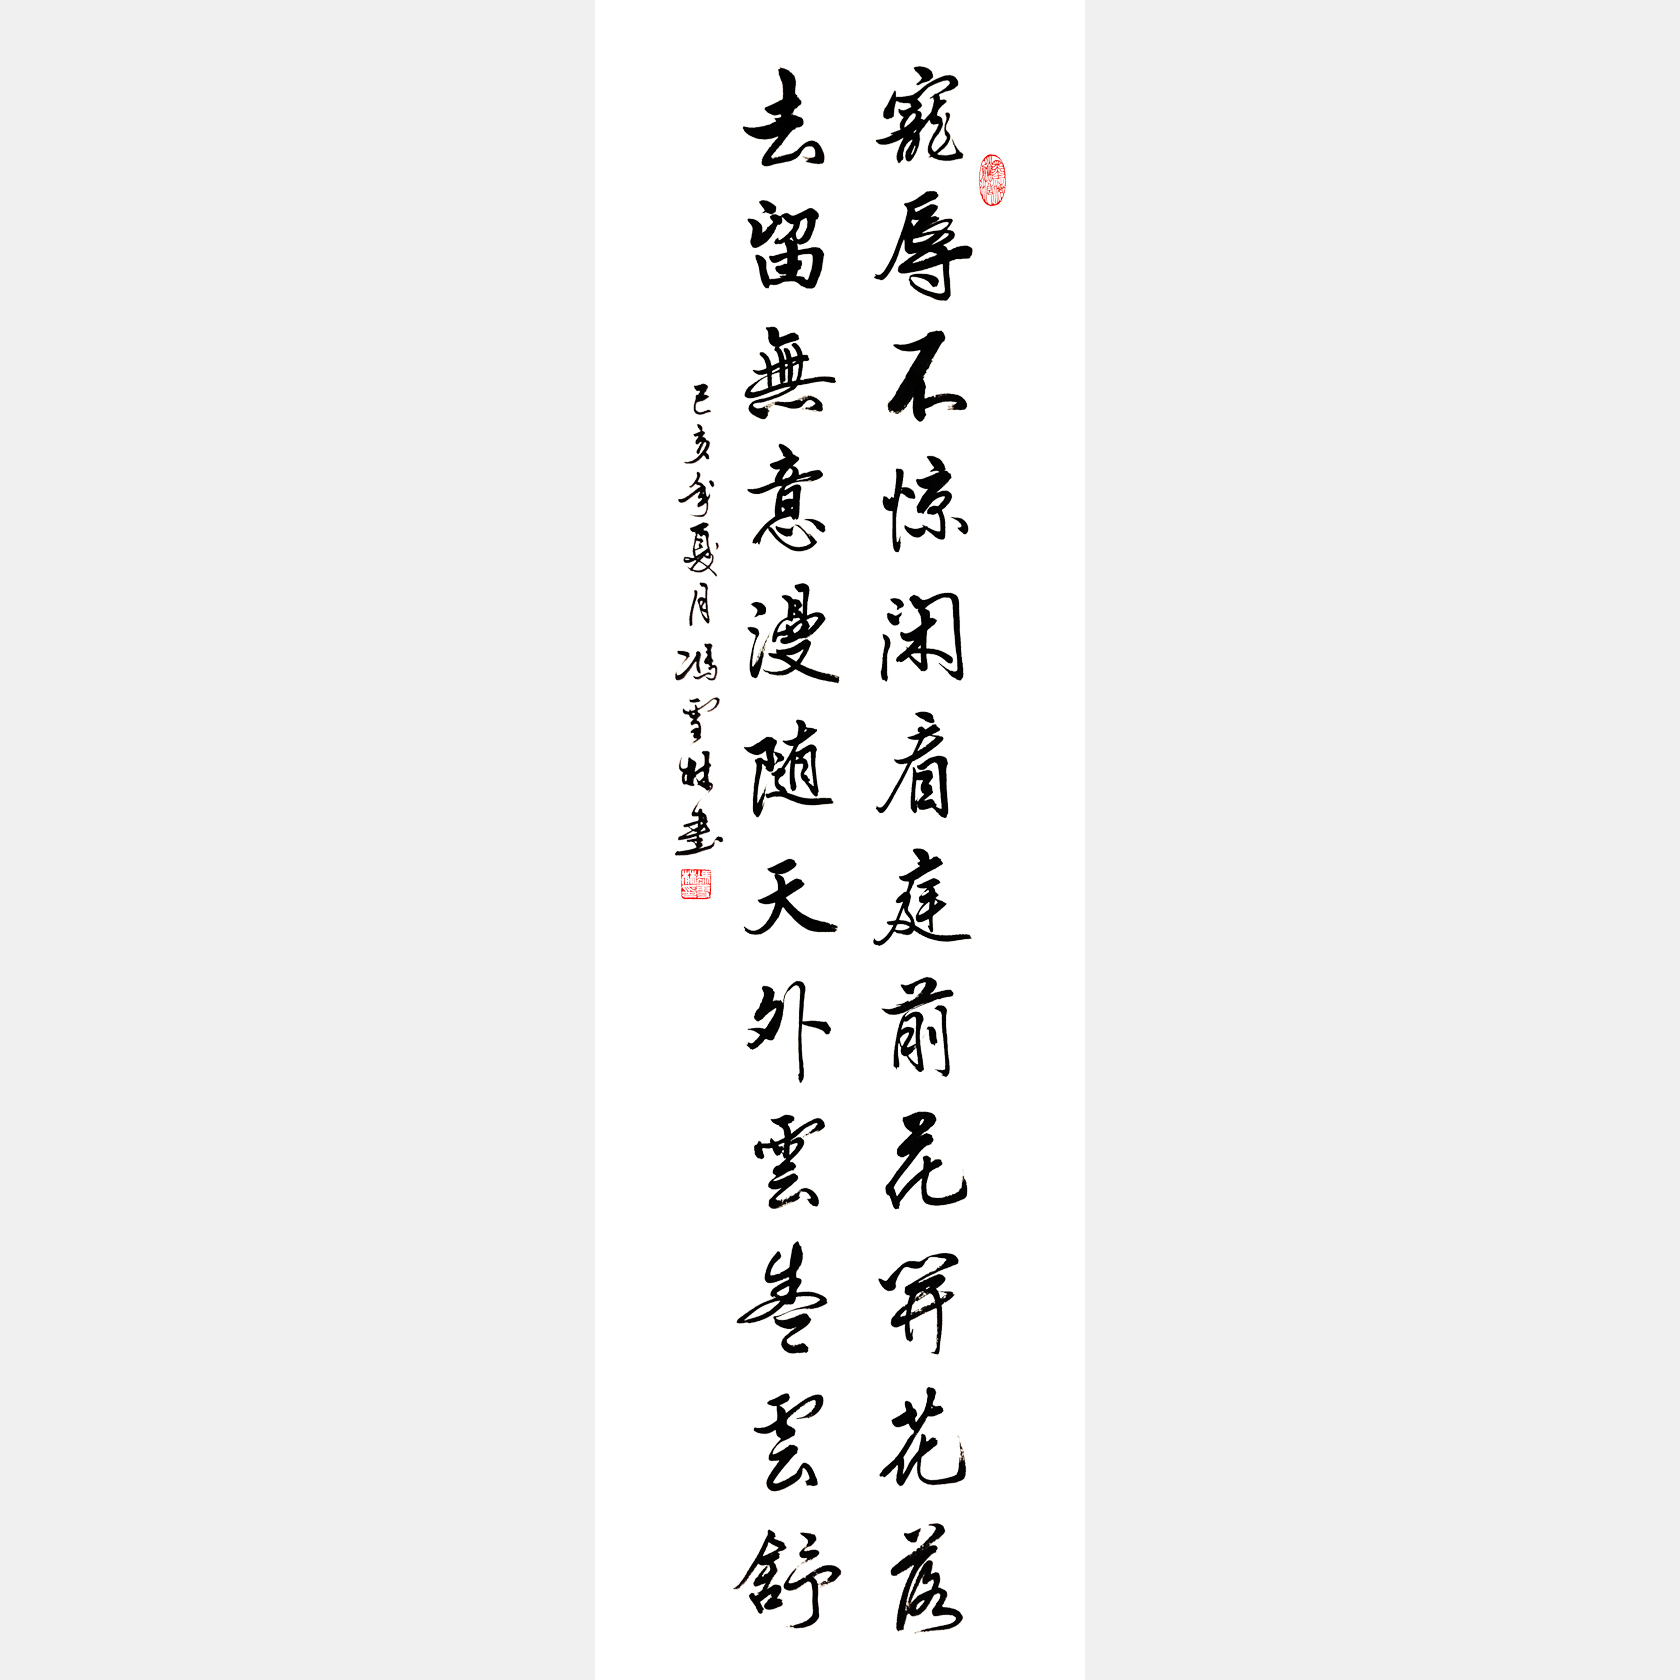 寵辱不惊闲看庭前花開花落
去留無意漫随天外雲卷雲舒
己亥年夏月馮雪林書